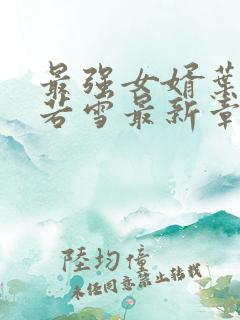 最强女婿葉
若雪最新章
陸均僮
未经同意禁止转载